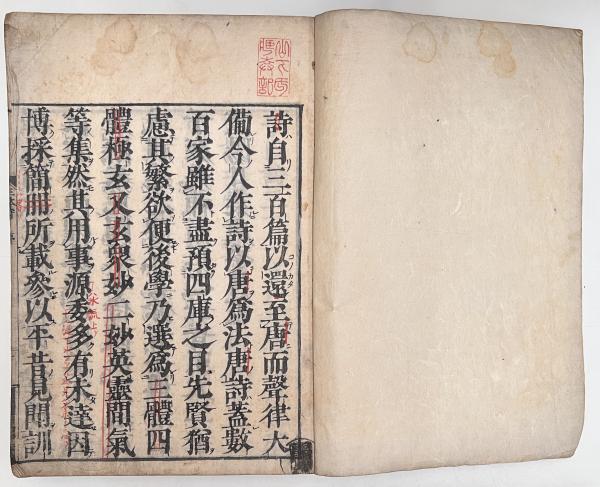 詩自三百篇以還至唐而聲律大
備今人作詩以唐為法唐詩蓋數
百家雖不盡預四庫之目先賢猶
慮其繁欲便後學乃選為三體四
體極玄又玄衆妙一妙英靈間氣
等集然其用事源委多有未達因
博採簡冊所載參以平昔見聞訓